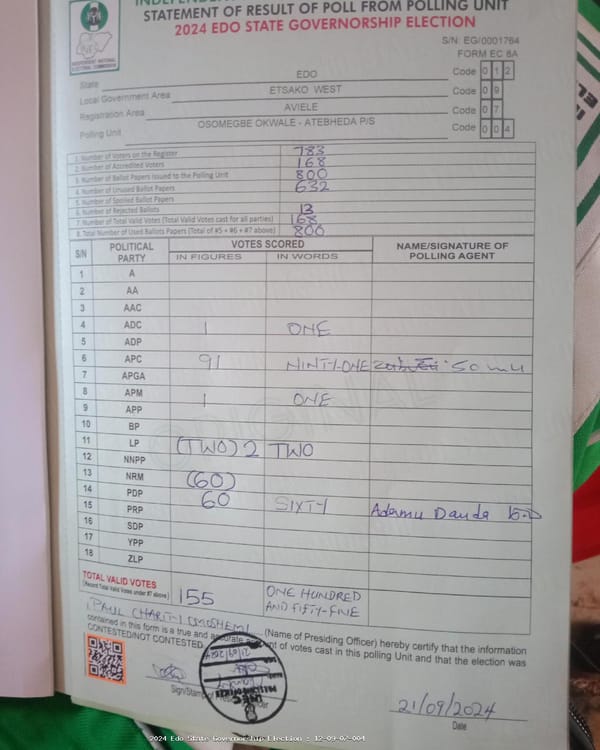 INDEPENDENT NATIONAL ELECTORAL COMMISSION
STATEMENT OF RESULT OF POLL FROM POLLING UNIT
2024 EDO STATE GOVERNORSHIP ELECTION
S/N: EG/0001764
FORM EC 8A
State EDO Code 0 1 2
Local Government Area ETSAKO WEST Code 0 9
Registration Area AVIELE Code 0 7
Polling Unit OSOMEGBE OKWALE - ATEBHEDA P/S Code 0 0 4
1. Number of Voters on the Register 783
2. Number of Accredited Voters 168
3. Number of Ballot Papers issued to the Polling Unit 800
4. Number of Unused Ballot Papers 632
5. Number of Spoiled Ballot Papers
6. Number of Rejected Ballots 13
7. Number of Total Valid Votes (Total Valid Votes cast for all parties) 168
8. Total Number of Used Ballots Papers (Total of #5 + #6 + #7 above) 800
S/N POLITICAL PARTY VOTES SCORED NAME/SIGNATURE OF POLLING AGENT
IN FIGURES IN WORDS
1 A
2 AA
3 AAC
4 ADC 1 ONE
5 ADP
6 APC 91 NINTY-ONE
7 APGA
8 APM 1 ONE
9 APP
10 BP
11 LP (TWO) 2 TWO
12 NNPP
13 NRM (60)
14 PDP 60 SIXTY Adamu Dauda
15 PRP
16 SDP
17 YPP
18 ZLP
TOTAL VALID VOTES 155 ONE HUNDRED AND FIFTY-FINE
(Record Total Valid Votes under #7 above)
I PAUL CHARITY OMOSHEMI (Name of Presiding Officer) hereby certify that the information
contained in this form is a true and accurate account of votes cast in this polling Unit and that the election was
CONTESTED/NOT CONTESTED.
21/09/2024
INEC
PRESIDING OFFICER
Sign/Stamp of Presiding Officer
21/09/2024
Date
2024 Edo State Governorship Election : 12-09-07-004